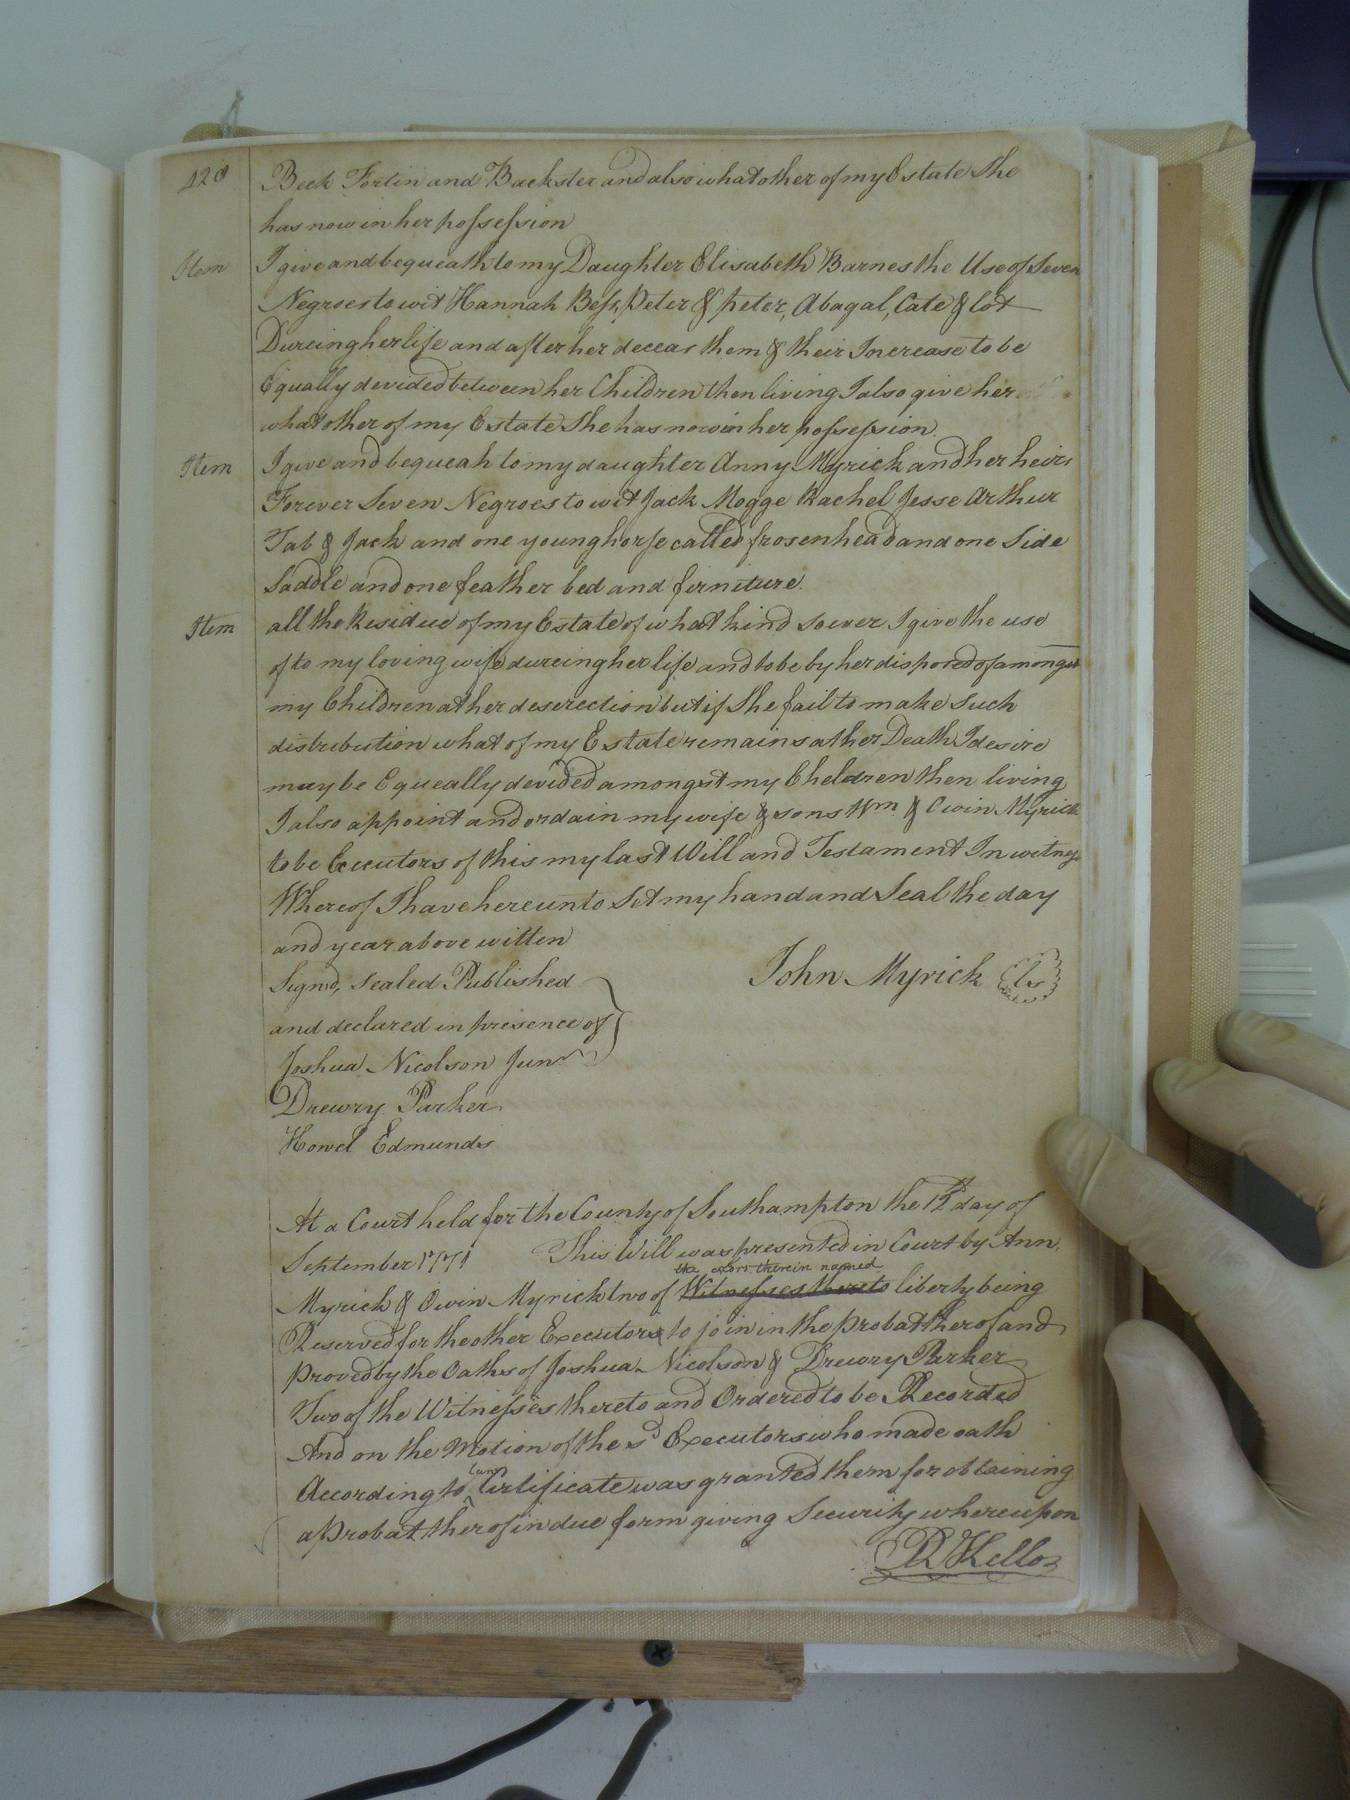 428
Beck Fortin and Backster and also what other of my Estate She
has now in her possession
Item I give and bequeath to my Daughter Elisabeth Barnes the Use of Seven
Negroes to wit Hannah Bess, Peter & peter, Abagal, Cate & Cot
Dureing her life and after her deceas them & their Increase to be
Equally devided between her Children then living I also give her
what other of my Estate She has now in her possession
Item I give and bequeah to my daughter Anny Myrick and her heirs
Forever Seven Negroes to wit Jack Mogge Rachel Jesse Arthur
Tab & Jack and one young horse called frosenhead and one Side
Saddle and one feather bed and firniture.
Item all the Residue of my Estate of what kind soever I give the use
of to my loving wife dureing her life and to be by her disposed of amongst
my Children at her deserection but if She fail to make Such
distribution what of my Estate remains at her Death I desire
may be Equeally devided amongst my Cheldren then living
I also appoint and ordain my wife & sons Wm & Owin Myrick
to be Executors of this my last Will and Testament In witness
Whereof I have hereunto Set my hand and Seal the day
and year above witten
John Myrick Ls
Signd, Sealed Published
and declared in presence of
Joshua Nicolson Junr
Drewry Parker
Howel Edmunds
At a Court held for the County of Southampton the 12th day of
September 1771 This Will was presented in Court by Ann
the exors therein named
Myrick & Owin Myrick two of Witnesses thereto liberty being
Reserved for the other Executors to join in the probat therof and
proved by the Oaths of Joshua Nicolson & Drewry Parker
Two of the Witnesses thereto and Ordered to be Recorded
And on the Motion of the sd Executors who made oath
According to Law Certificate was granted them for obtaining
a Probat therof in due form giving Security whereupon
R Kello